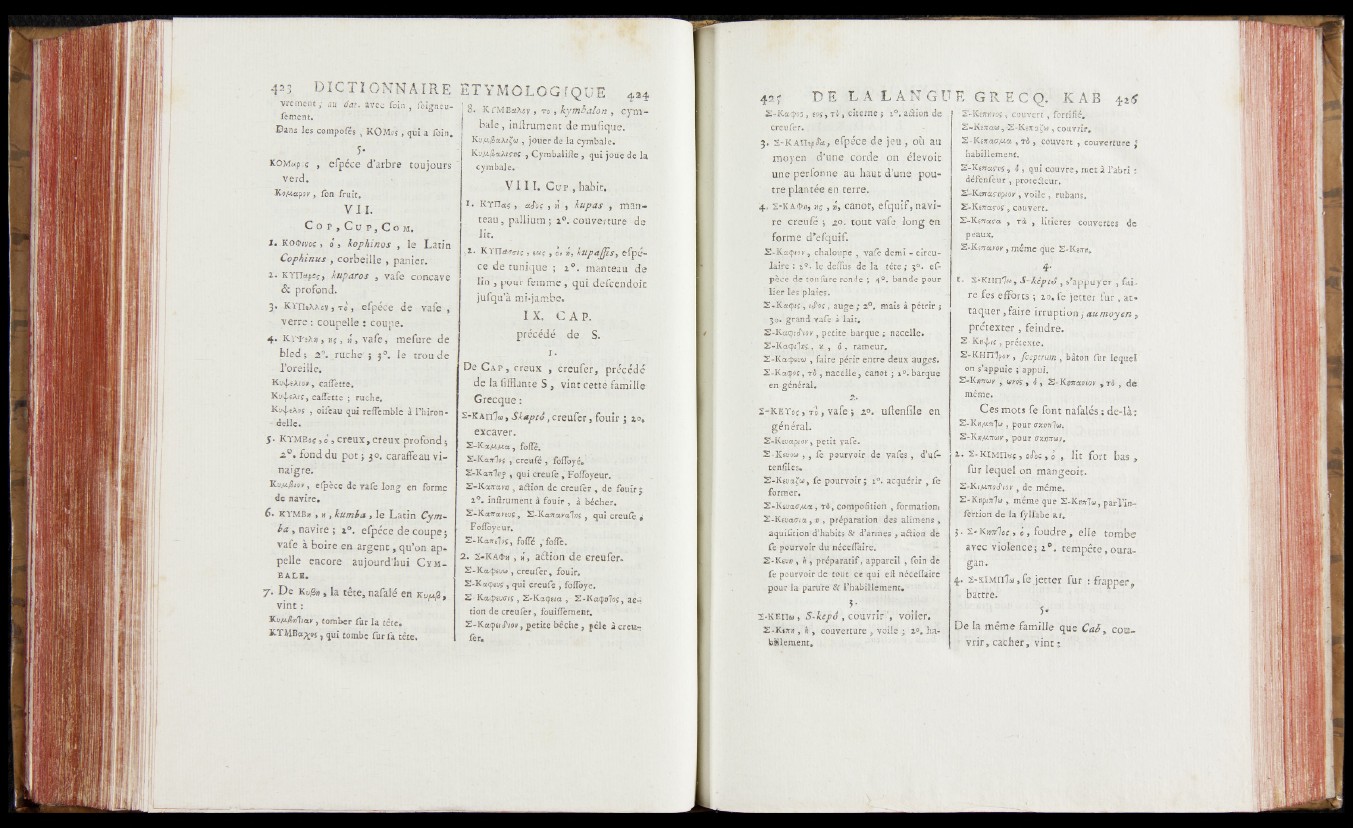 423 DICTIONNAIRE ETYMOLOGIQUE 424
vrement; au dat. avec soin, soigneu-
sement.
Dans les composés, ΚΟΜος, qui a soin.
5.
ΚΟΜαρ·ς, espéce d'arbre toujours
verd.
Κομαρον, son fruit.
VII.
COP, CUP, COM.
1. ΚΟΦινος, ὁ, kophinos, le Latin
Cophinus, corbeille, panier.
2. ΚΥΠαρος, kuparos, vase concave
& profond.
3. ΚΥΠελλον, τὸ, espéce de vase,
verre: coupelle: coupe.
4. ΚΥΨελη, ης, ἡ, vase, mesure de
bled; 2°. ruche; 3°. le trou de
l'oreille.
Κυψελιον, cassette.
Κυψελις, cassette; ruche.
Κυψελος, oiseau qui ressemble à l'hiron-
delle.
5. ΚΥΜΒος, ὁ, creux, creux profond;
2°. fond du pot; 3°. caraffe au vi-
naigre.
Κυμβιον, espèce de vase long en forme
de navire.
6. ΚΥΜΒη, ἡ, kumba, le Latin Cym-
ba, navire; 2°. espéce de coupe;
vase à boire en argent, qu'on ap-
pelle encore aujourd'hui CYM-
BALE.
7. De Κυβη, la tête, nasalé en Κυμβ,
vint:
Κυμβητιαν, tomber sur la tête.
ΚΥΜΒαχος, qui tombe sur sa tête.
8. ΚΥΜΒαλον, το, kymbalon, cym-
bale, instrument de musique.
Κυμβαλιζω, jouer de la cymbale.
Κυμβαλιστς, Cymbaliste, qui joue de la
cymbale.
VIII. CUP, habit.
1. ΚΥΠας, αδος, ἡ, kupas, man-
teau, pallium; 2°. couverture de
lit.
2. ΚΥΠασσις, εως, ὁ, ἡ, kupassis, espé-
ce de tunique; 2°. manteau de
lin, pour femme, qui descendoit
jusqu'à mi-jambe.
IX. CAP.
précédé de S.
1.
De CAP, creux, creuser, précédé
de la sifflante S, vint cette famille
Grecque:
Σ-ΚΑΠΤω, Skaptó, creuser, fouir; 2°.
excaver.
Σ-Καμμα, fossé.
Σ-Καπτος, creusé, fossoyé.
Σ-Καπτερ, qui creuse, Fossoyeur.
Σ-Καπανη, action de creuser, de fouir;
2°. instrument à fouir, à bécher.
Σ-Καπανευς, Σ-Καπανητης, qui creuse,
Fossoyeur.
Σ-Καπετος, fossé, fosse.
2. Σ-ΚΑΦη, ἡ, action de creuser.
Σ-Καφευω, creuser, fouir.
Σ-Καφευς, qui creuse, fossoye.
Σ-Καφευσις, Σ-Καφεια, Σ-Καφητος, ac-
tion de creuser, fouissement.
Σ-Καφειδιον, petite bêche, pêle à creu-
ser.
425 DE LA LANGUE GRECQ. KAB 426
Σ-Καφος, εος, τὸ, citerne; 2°. action de
creuser.
3. Σ-ΚΑΠερδα, espéce de jeu, où au
moyen d'une corde on élevoit
une personne au haut d'une pou-
tre plantée en terre.
4. Σ-ΚΑΦη, ης, ἡ, canot, esquif, navi-
re creusé; 2°. tout vase long en
forme d'esquif.
Σ-Καφιον, chaloupe, vase demi-circu-
laire: 2°. le dessus de la tête; 3°. es-
pèce de tonsure ronde; 4°. bande pour
lier les plaies.
Σ-Καφις, ιδος, auge; 2°. mais à pétrir;
3°. grand vase à lait.
Σ-Καφιδιον, petite barque; nacelle.
Σ-Καφιτης, ου, ὁ, rameur.
Σ-Καφευω, faire périr entre deux auges.
Σ-Καφος, τὸ, nacelle, canot; 2°. barque
en général.
2.
Σ-ΚΕΥος, τὸ, vase; 2°. ustensile en
général.
Σ-Κευαριον, petit vase.
Σ-Κευοω, se pourvoir de vases, d'us-
tensiles.
Σ-Κευαζω, se pourvoir; 2°. acquérir, se
former.
Σ-Κευασμα, τὸ, composition, formation.
Σ-Κευασια, ἡ, préparation des alimens,
aquisition d'habits & d'armes, action de
se pourvoir du nécessaire.
Σ-Κευη, ἡ, préparatif, appareil, soin de
se pourvoir de tout ce qui est nécessaire
pour la parure & l'habillement.
3.
Σ-ΚΕΠω, S-kepó, couvrir, voiler.
Σ-Κεπη, ἡ, couverture, voile; 2°. ha-
billement.
Σ-Κεπηνος, couvert, fortifié.
Σ-Κεπαω, Σ-Κεπαζω, couvrir.
Σ-Κεπασμα, τὸ, couvert, couverture;
habillement.
Σ-Κεπαστης, ὁ, qui couvre, met à l'abri:
défenseur, protecteur.
Σ-Κεπαστηριον, voile, rubans.
Σ-Κεπαστος, couvert.
Σ-Κεπαστα, τὰ, litières couvertes de
peaux.
Σ-Κεπανον, même que Σ-Κεπη.
4.
1. Σ-ΚΗΠΤω, S-képtó, s'appuyer, fai-
re ses efforts; 2°. se jetter sur, at-
taquer, faire irruption; au moyen,
prétexter, feindre.
Σ-Κηψις, prétexte.
Σ-ΚΗΠΤρον, sceptrum, bâton sur lequel
on s'appuie; appui.
Σ-Κηπων, ωνος, ὁ, Σ-Κηπανιον, τὸ, de
même.
Ces mots se sont nasalés; de-là:
Σ-Κημπτω, pour σκηπτω.
Σ-Κημπων, pour σκηπων.
2. Σ-ΚΙΜΠους, οδος, ὁ, lit fort bas,
sur lequel on mangeoit.
Σ-Κιμποδιον, de même.
Σ-Κηριπτω, même que Σ-Κηπτω, par l'in-
sertion de la syllabe ar.
3. Σ-Κηπτος, ὁ, foudre, elle tombe
avec violence; 2°. tempête, oura-
gan.
4. Σ-ΚΙΜΠΤω, se jetter sur: frapper,
battre.
5.
De la même famille que Cab, cou-
vrir, cacher, vint: